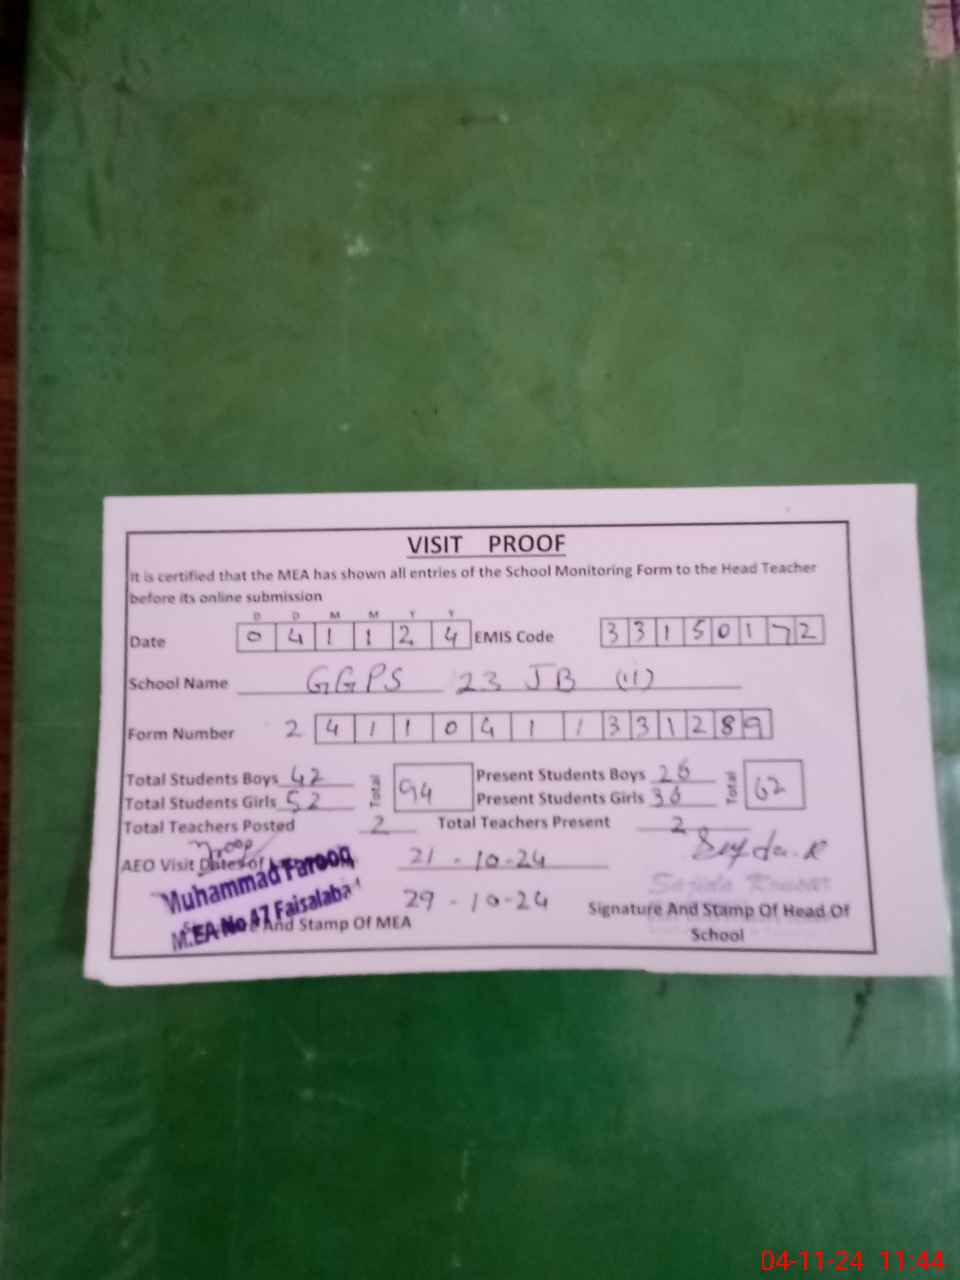 VISIT PROOF
It is certified that the MEA has shown all entries of the School Monitoring Form to the Head Teacher
before its online submission
D D M M Y Y
Date 0 4 1 1 2 4 EMIS Code 3 3 1 5 0 1 7 2
School Name GGPS 23 JB (ii)
Form Number 2 4 1 1 0 4 1 1 3 3 1 2 8 9
Total Students Boys 42 Total 94 Present Students Boys 26 Total 62
Total Students Girls 52 Present Students Girls 36
Total Teachers Posted 2 Total Teachers Present 2
AEO Visit Dates of 21-10-24
Muhammad Farooq
29-10-24
M.EA No 47 Faisalaba
And Stamp Of MEA
Sajida Kousar
Signature And Stamp Of Head Of
School
04-11-24 11:44